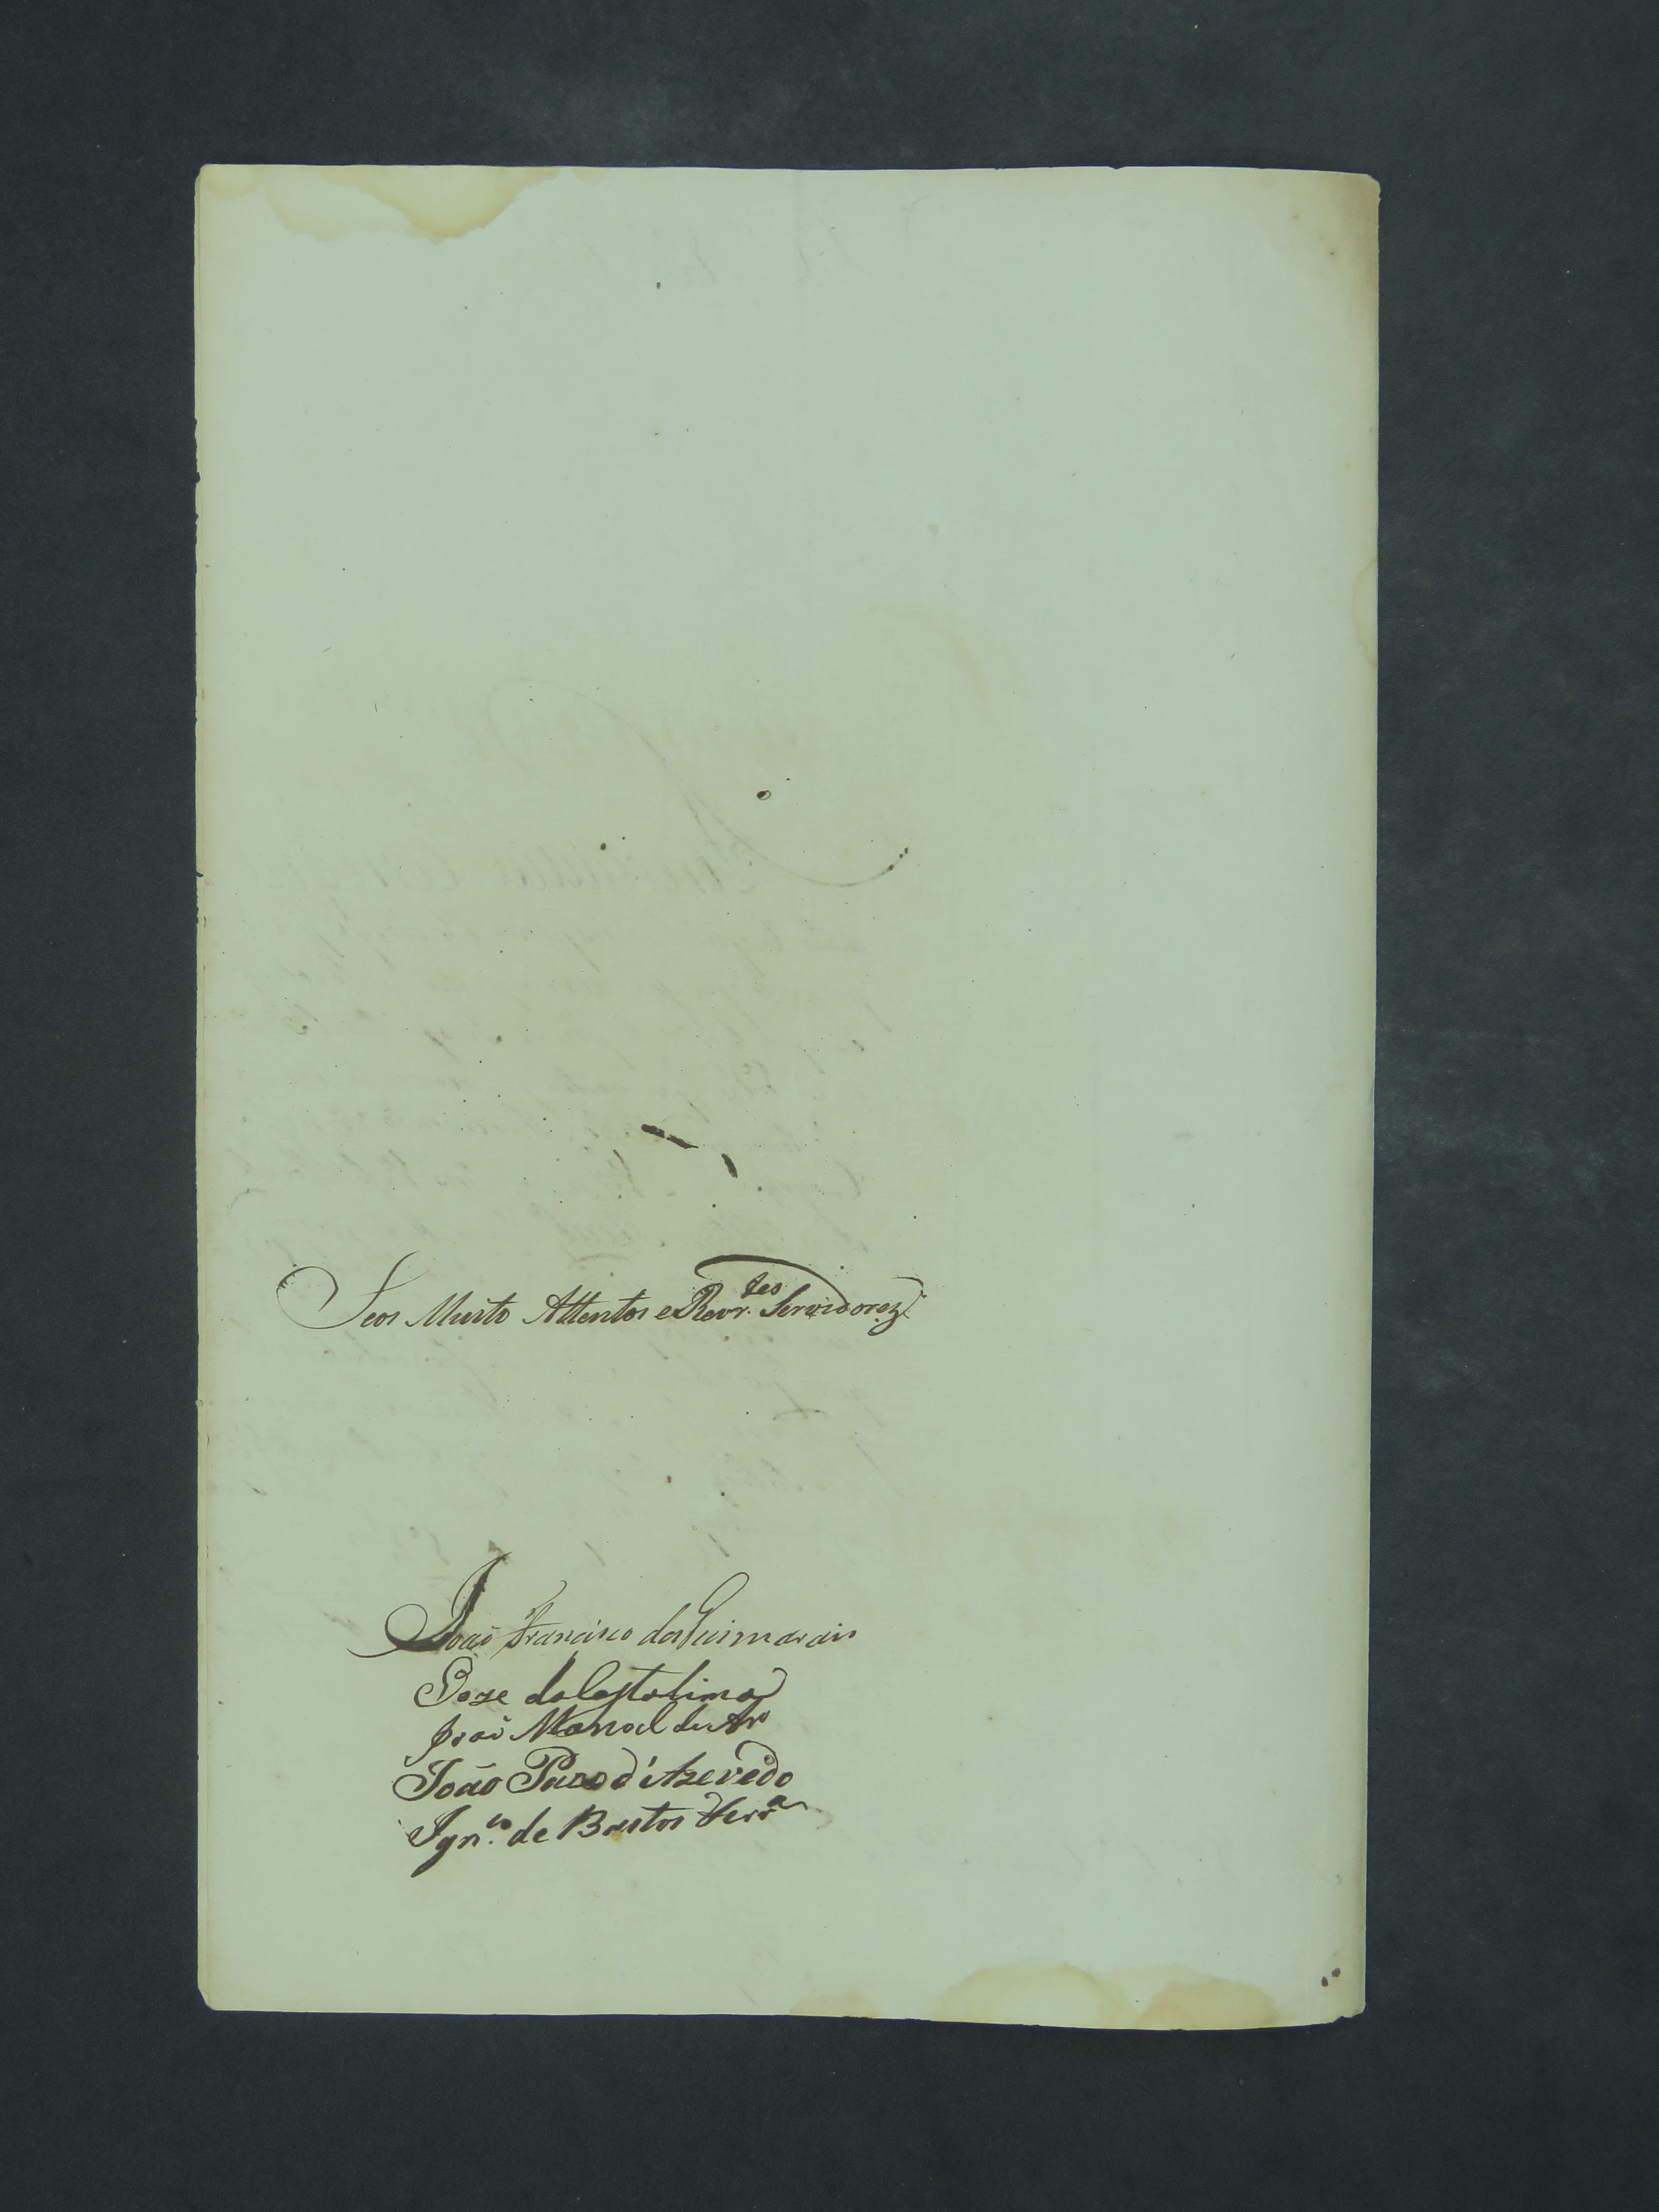 Seos Muito Attentos e Revr.tes Servidorez
João Francisco dos Guimarais
Joze da Costa Lima
João Manoel de Ar
João d'Azevedo
Ign.co de Bastos Ferr.a